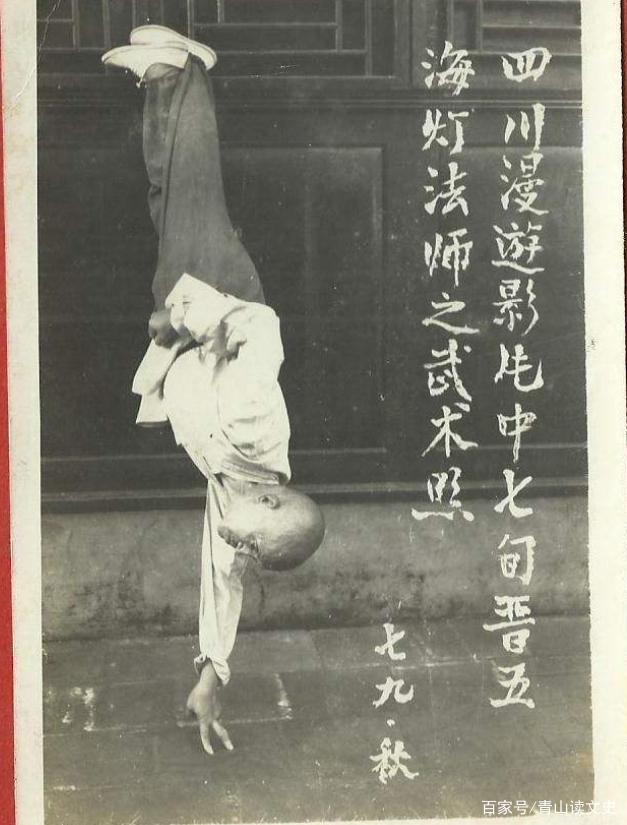 四川漫遊影片中七旬晋五
海灯法师之武术照
七九·秋
百家号/青山读文史